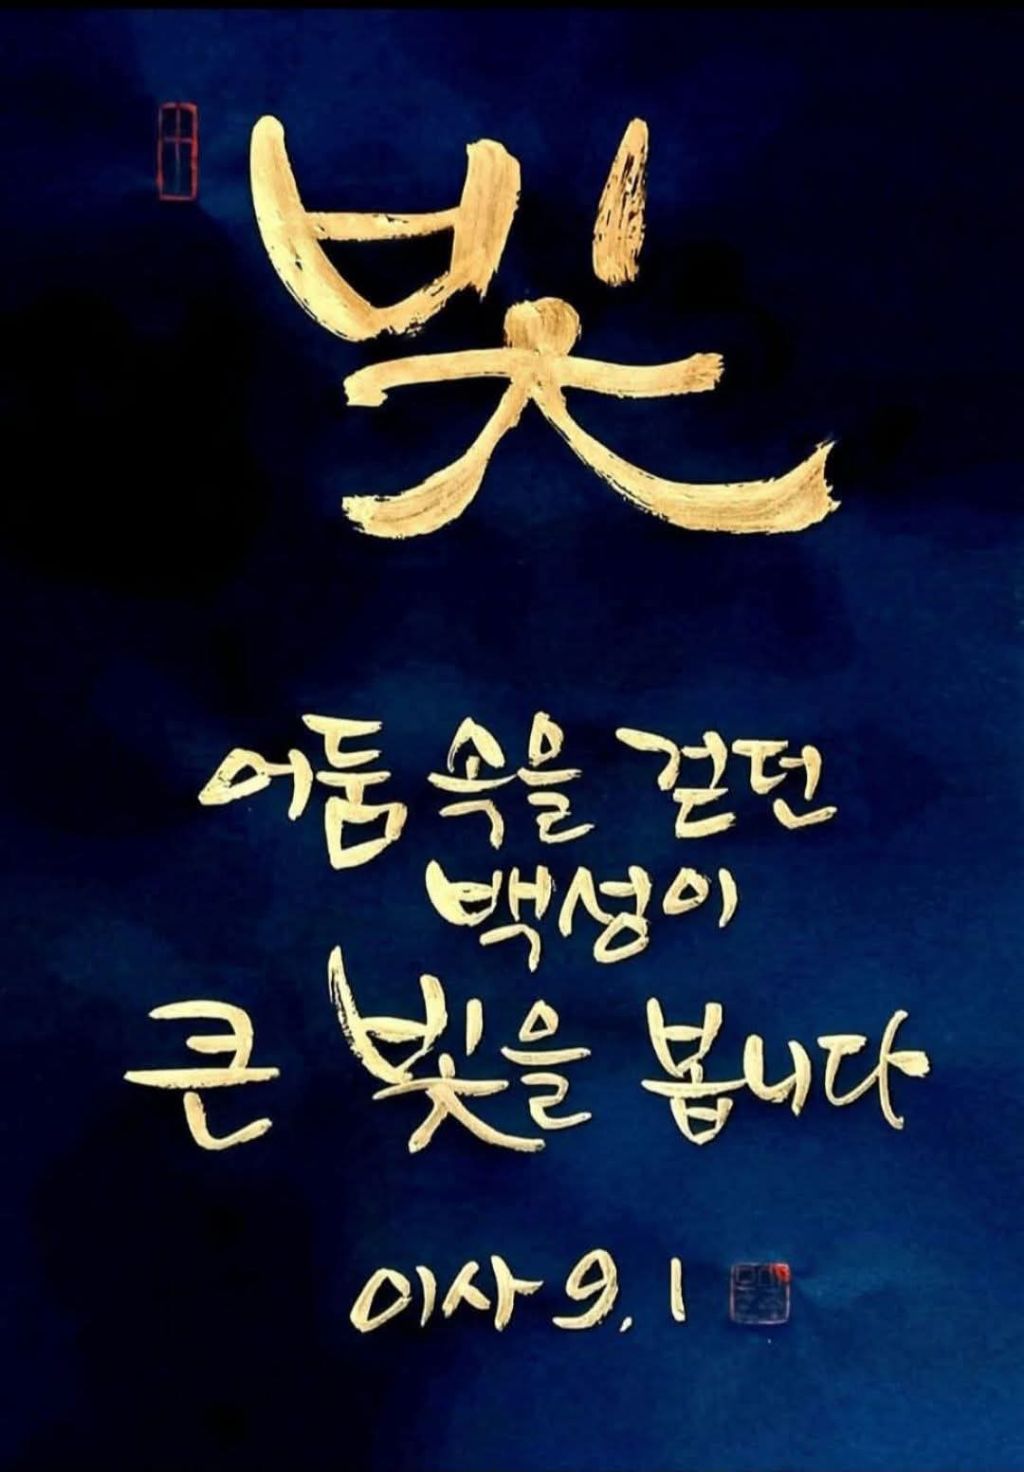 빛
어둠 속을 걷던
백성이
큰 빛을 봅니다
이사 9,1